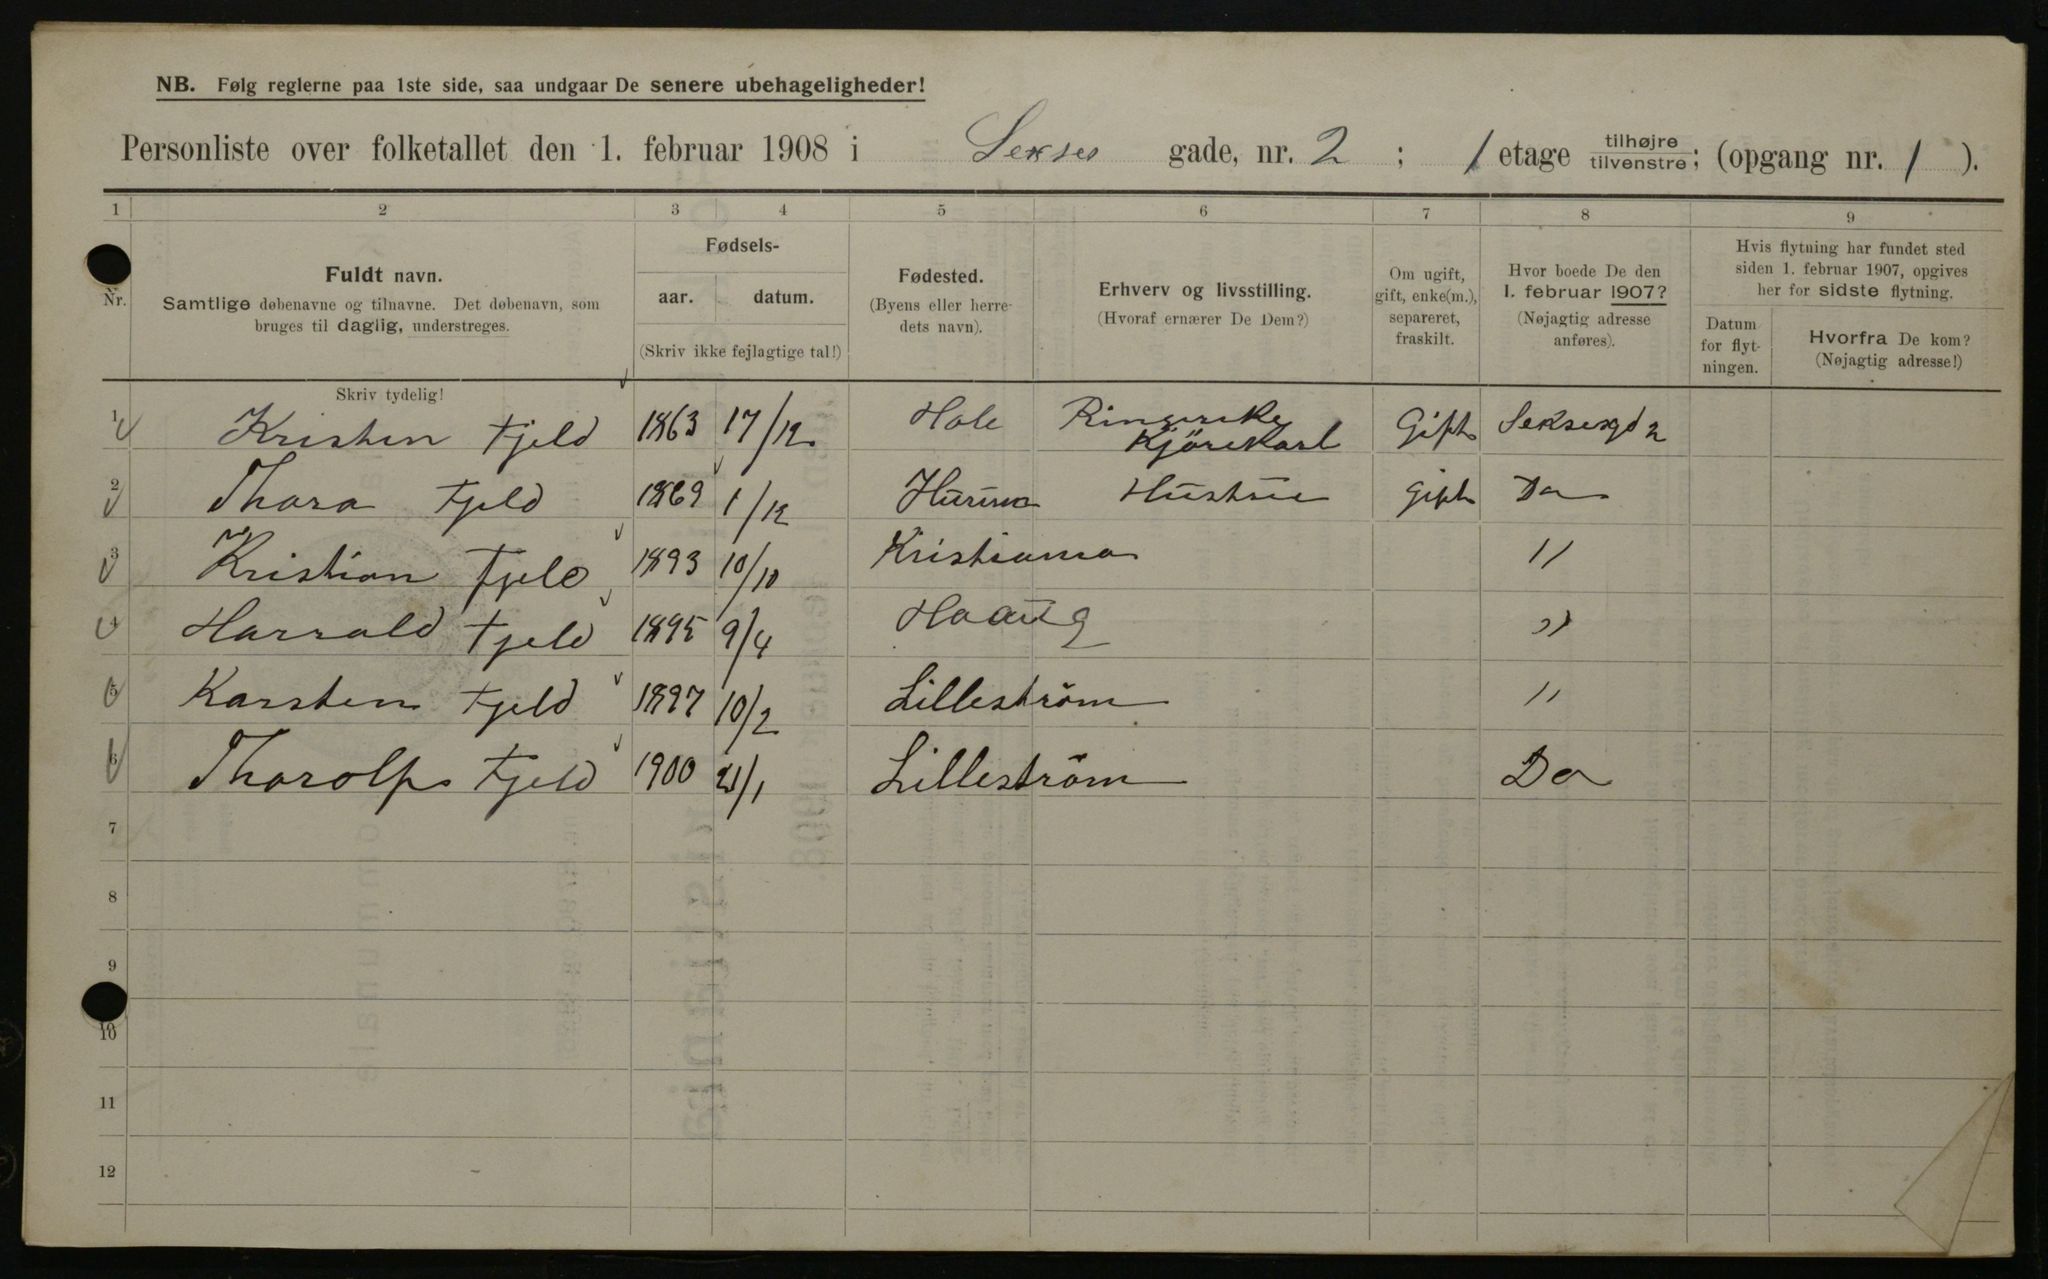 NB. Følg reglerne paa 1ste side, saa undgaar De senere ubehageligheder!
Personliste over folketallet den 1. februar 1908 i Sexses gade, nr. 2 ; 1 etage tilhøjre tilvenstre; (opgang nr. 1 ).
1 2 3 4 5 6 7 8 9
Nr.
Fuldt navn.
Samtlige døbenavne og tilnavne. Det døbenavn, som
bruges til daglig, understreges.
Fødsels-
aar. datum.
(Skriv ikke fejlagtige tal!)
Fødested.
(Byens eller herre-
dets navn).
Erhverv og livsstilling.
(Hvoraf ernærer De Dem?)
Om ugift,
gift, enke(m.),
separeret,
fraskilt.
Hvor boede De den
1. februar 1907?
(Nøjagtig adresse
anføres).
Hvis flytning har fundet sted
siden 1. februar 1907, opgives
her for sidste flytning.
Datum
for flyt-
ningen.
Hvorfra De kom?
(Nøjagtig adresse!)
Skriv tydelig!
1 Kristen Fjeld 1863 17/12 Hole Ringerike Kjörekarl Gift Seksesgd 2
2 Thora Fjeld 1869 1/12 Hurum Hustrue Gift Do
3 Kristian Fjeld 1893 10/10 Kristiania "
4 Harrald Fjeld 1895 9/4 Haaug "
5 Karsten Fjeld 1897 10/2 Lilleström "
6 Thorolf Fjeld 1900 21/1 Lilleström Do
7
8
9
10
11
12